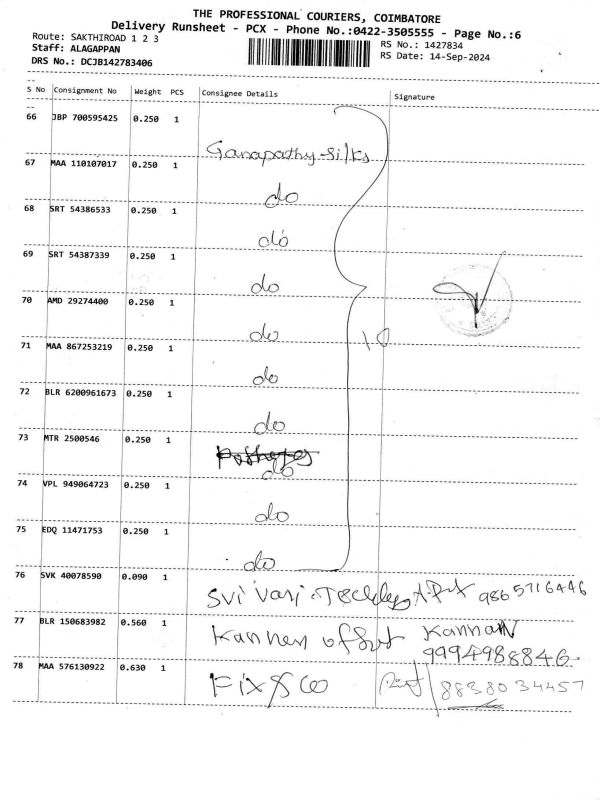 THE PROFESSIONAL COURIERS, COIMBATORE
Delivery Runsheet - PCX - Phone No.:0422-3505555 - Page No.:6
Route: SAKTHIROAD 1 2 3
RS No.: 1427834
Staff: ALAGAPPAN
RS Date: 14-Sep-2024
DRS No.: DCJB142783406
S No Consignment No Weight PCS Consignee Details Signature
66 JBP 700595425 0.250 1
Ganapathy-Silks
67 MAA 110107017 0.250 1
do
68 SRT 54386533 0.250 1
do
69 SRT 54387339 0.250 1
do
70 AMD 29274400 0.250 1
do
10
71 MAA 867253219 0.250 1
do
72 BLR 6200961673 0.250 1
do
73 MTR 2500546 0.250 1
do
74 VPL 949064723 0.250 1
do
75 EDQ 11471753 0.250 1
do
76 SVK 40078590 0.090 1
Svi Vari 9865716446
77 BLR 150683982 0.560 1
Kannan offset Kannan
9994988846
78 MAA 576130922 0.630 1
Fix & Co 8838034457